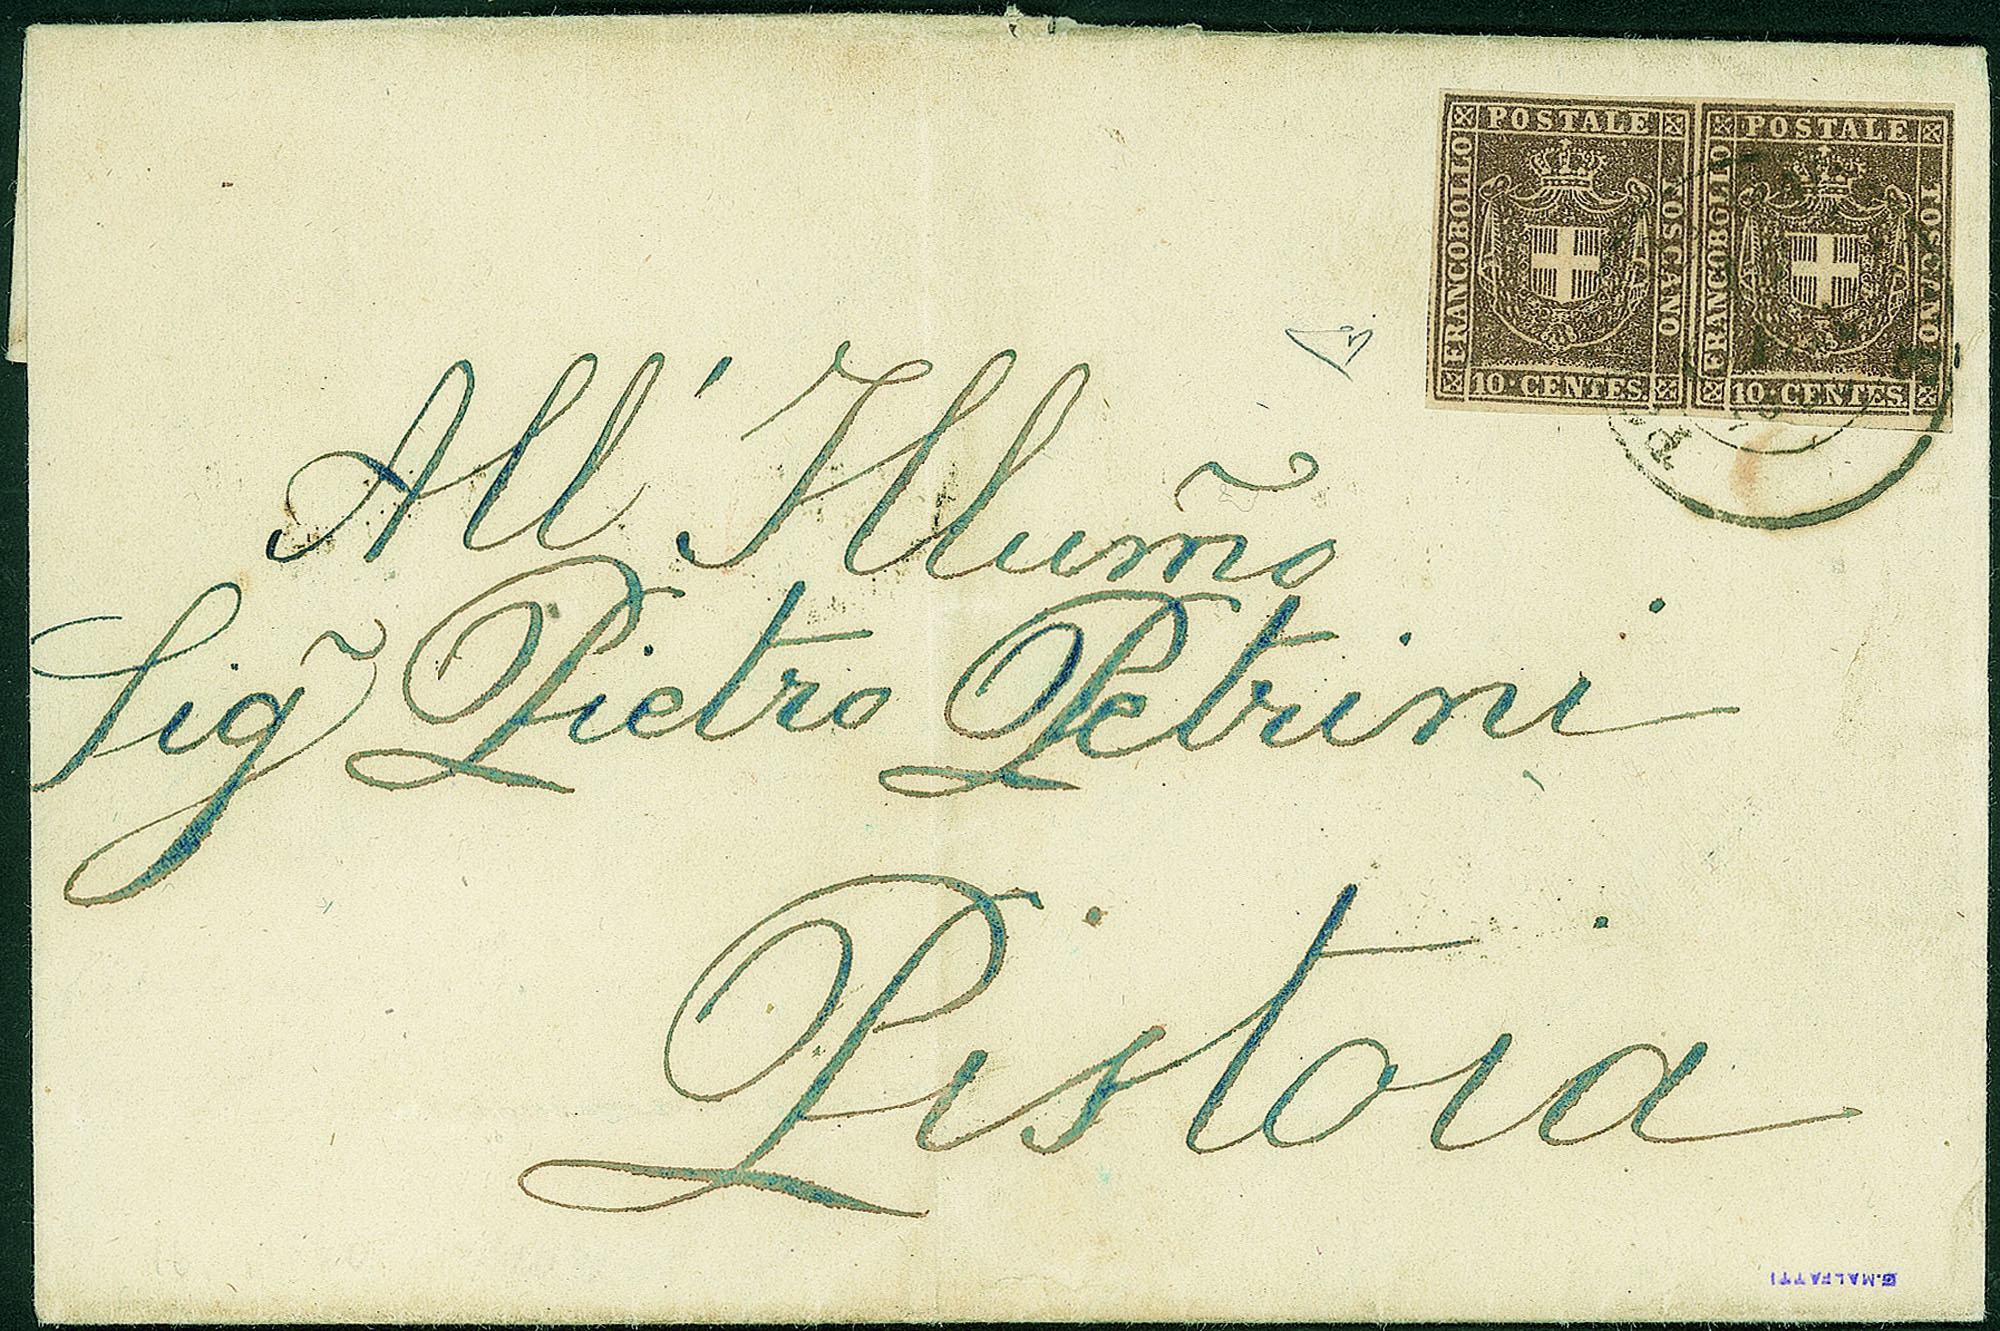 POSTALE POSTALE
FRANCOBOLLO TOSCANO FRANCOBOLLO TOSCANO
10 CENTES. 10 CENTES.
All' Illumõ
Sig~ Pietro Petrini
Pistoia
G. MALFATTI